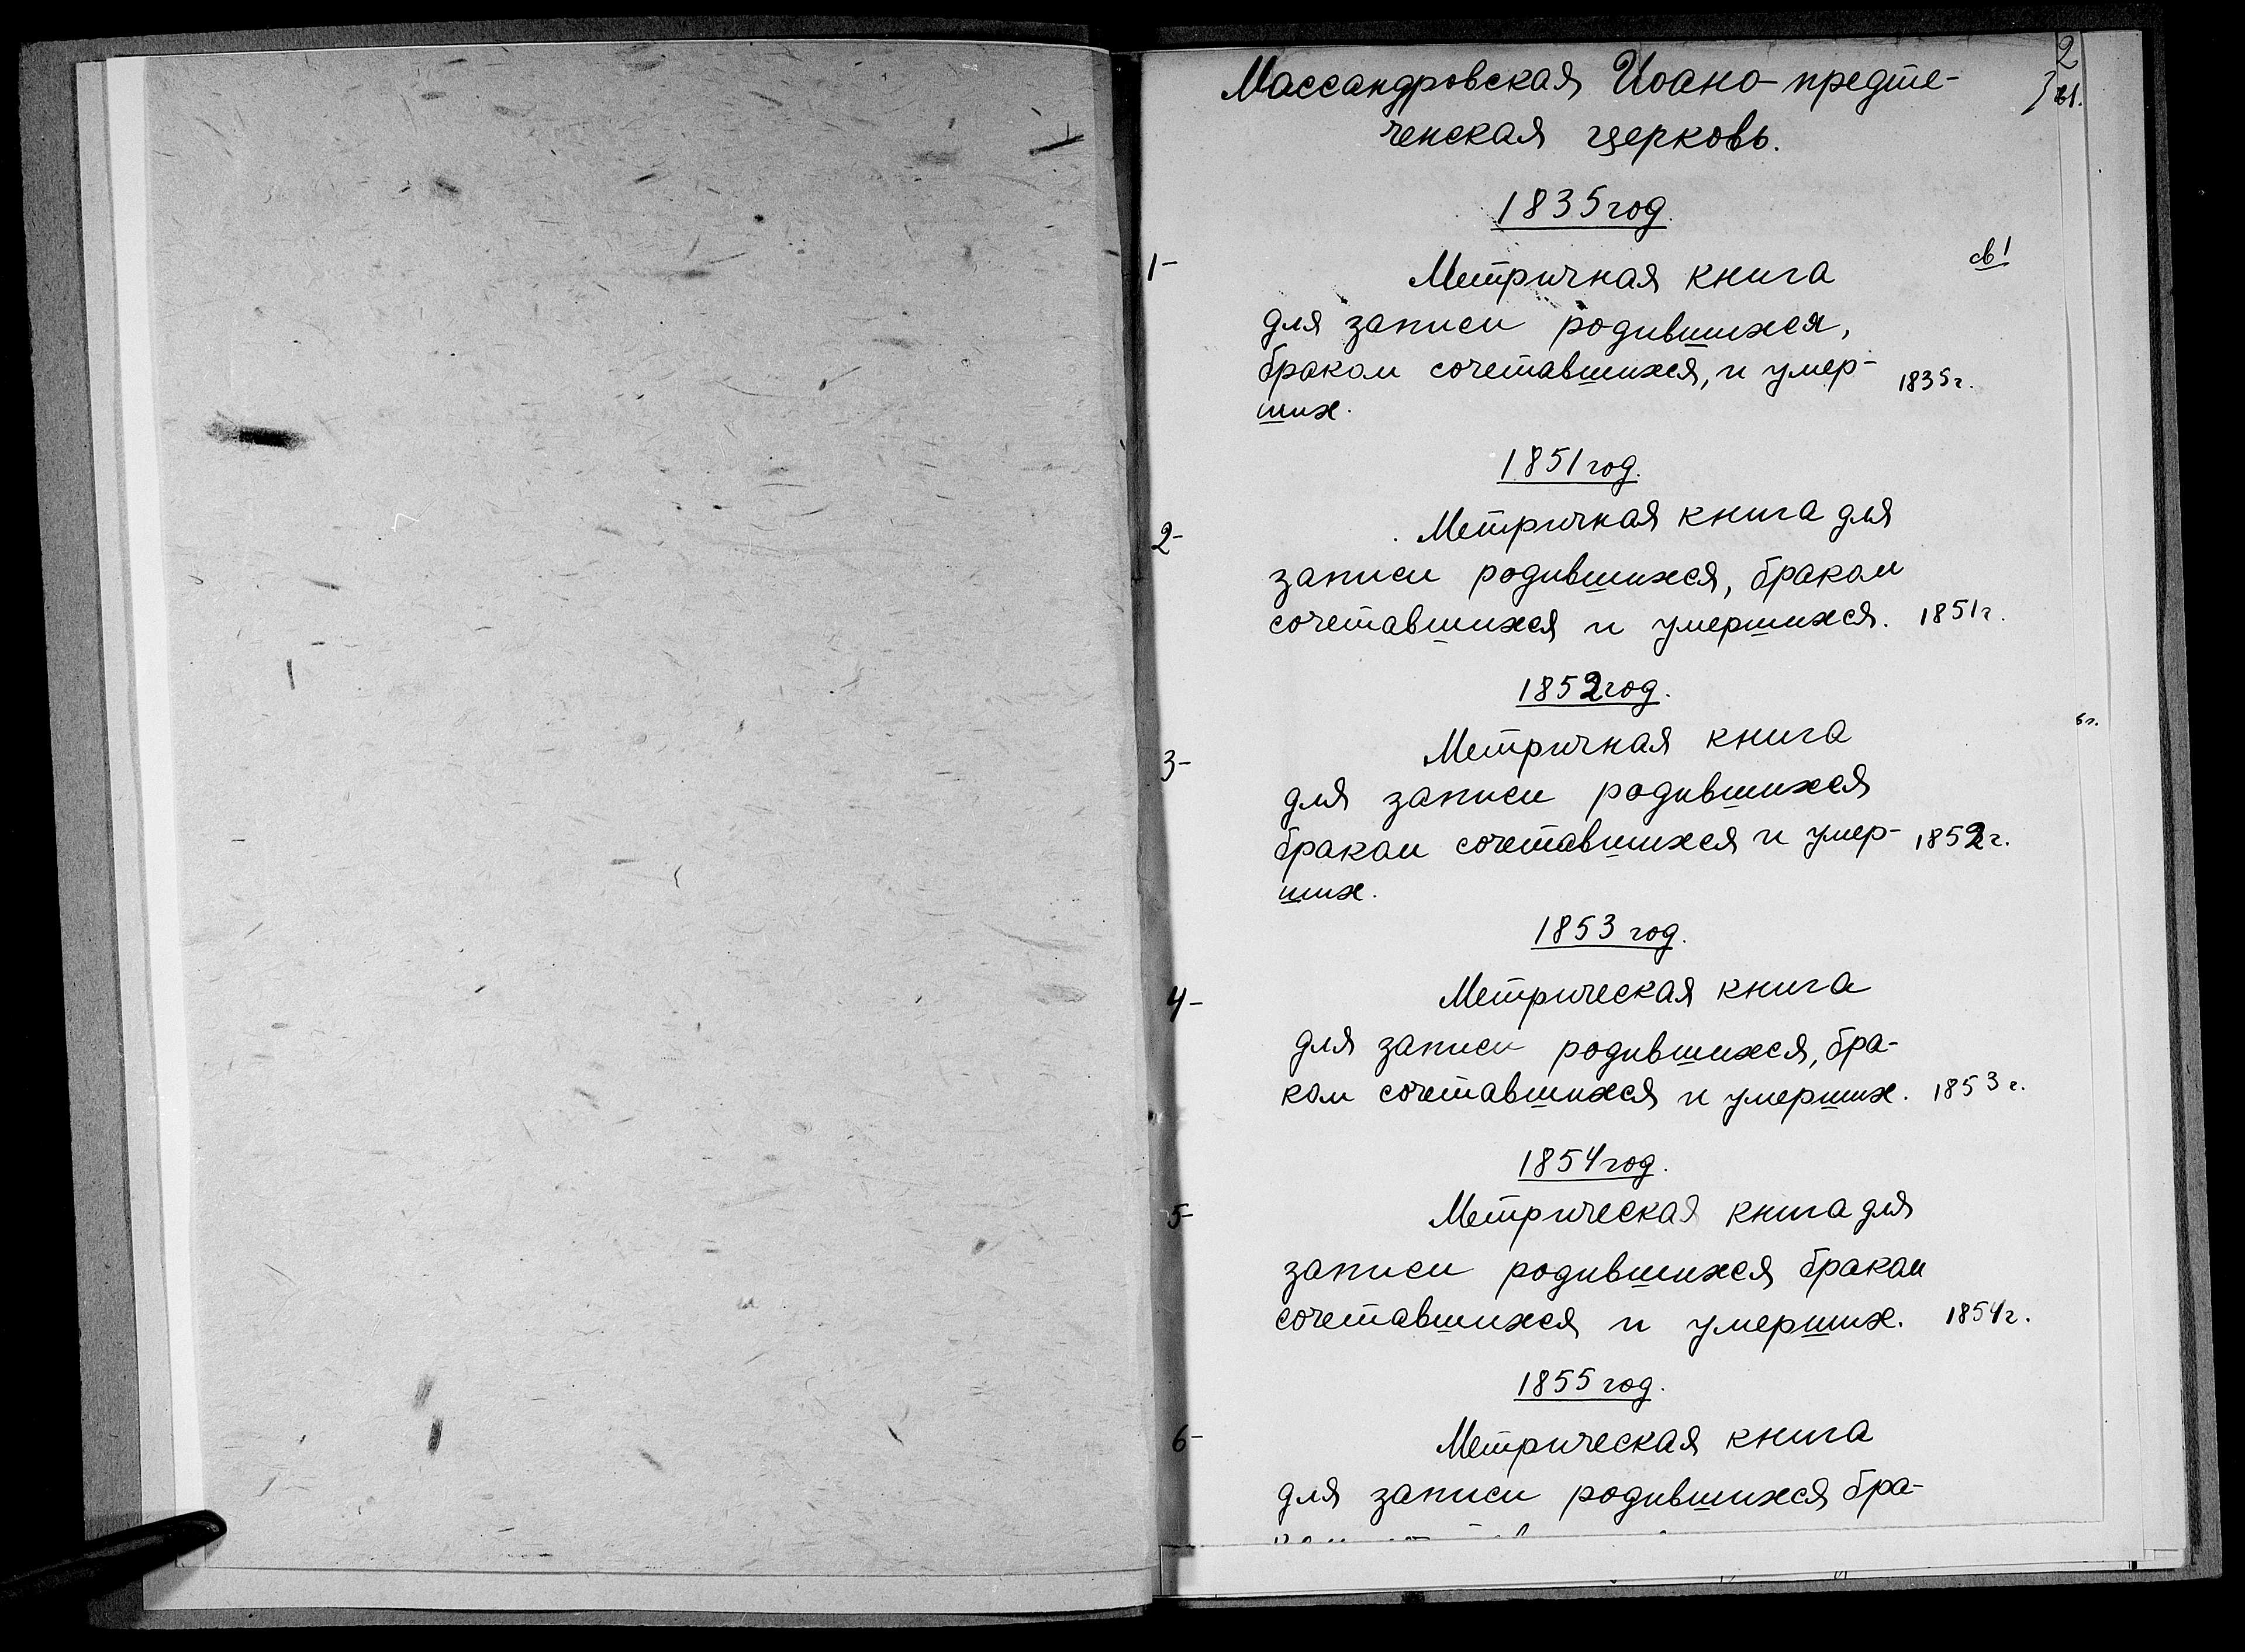 2
Массандровская Иоано-предте-
ченская церковь.
1835 год.
1-
св 1
Метричная книга
для записи родившихся,
браком сочетавшихся, и умер- 1835 г.
ших.
1851 год.
2-
Метричная книга для
записи родившихся, браком
сочетавшихся и умершихся. 1851 г.
1852 год.
3-
Метричная книга
для записи родившихся
браком сочетавшихся и умер- 1852 г.
ших.
1853 год.
4-
Метрическая книга
для записи родившихся, бра-
ком сочетавшихся и умерших. 1853 г.
1854 год.
5-
Метрическая книга для
записи родившихся браком
сочетавшихся и умерших. 1854 г.
1855 год.
6-
Метрическая книга
для записи родившихся бра-